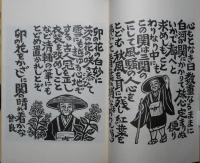 心許なき日数重なるままに
白河の関にかかりて旅心定
まりぬいかで都へと便り
求めしも
ことわりなり
中にも
この関は三関の
一にして風騒の人心を
とどむ秋風を耳に残し紅葉を
卯の花の白妙に茨の
花の咲き添ひて
雪にも越ゆる心地ぞする
古人冠を正し衣
装を改めしこと
など清輔の筆にも
とどめ置かれしとぞ
卯の花をかざしに関の晴着かな
曾良